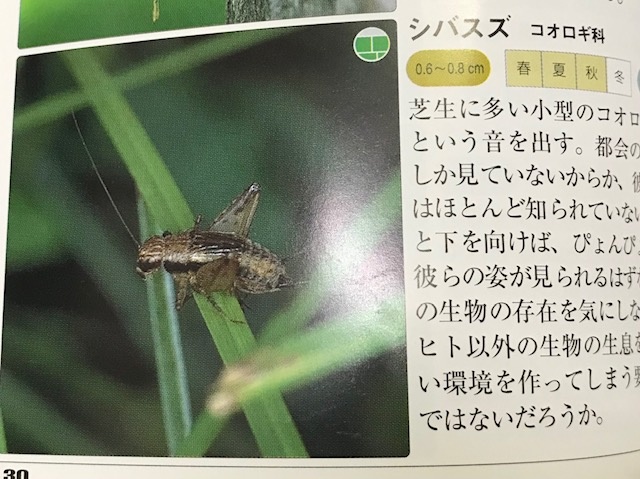 シバスズ コオロギ科
0.6〜0.8 cm 春 夏 秋 冬
芝生に多い小型のコオロ
という音を出す。都会の
しか見ていないからか、彼
はほとんど知られていない
と下を向けば、ぴょんぴ
彼らの姿が見られるはず
の生物の存在を気にしな
ヒト以外の生物の生息を
い環境を作ってしまう要
ではないだろうか。
30